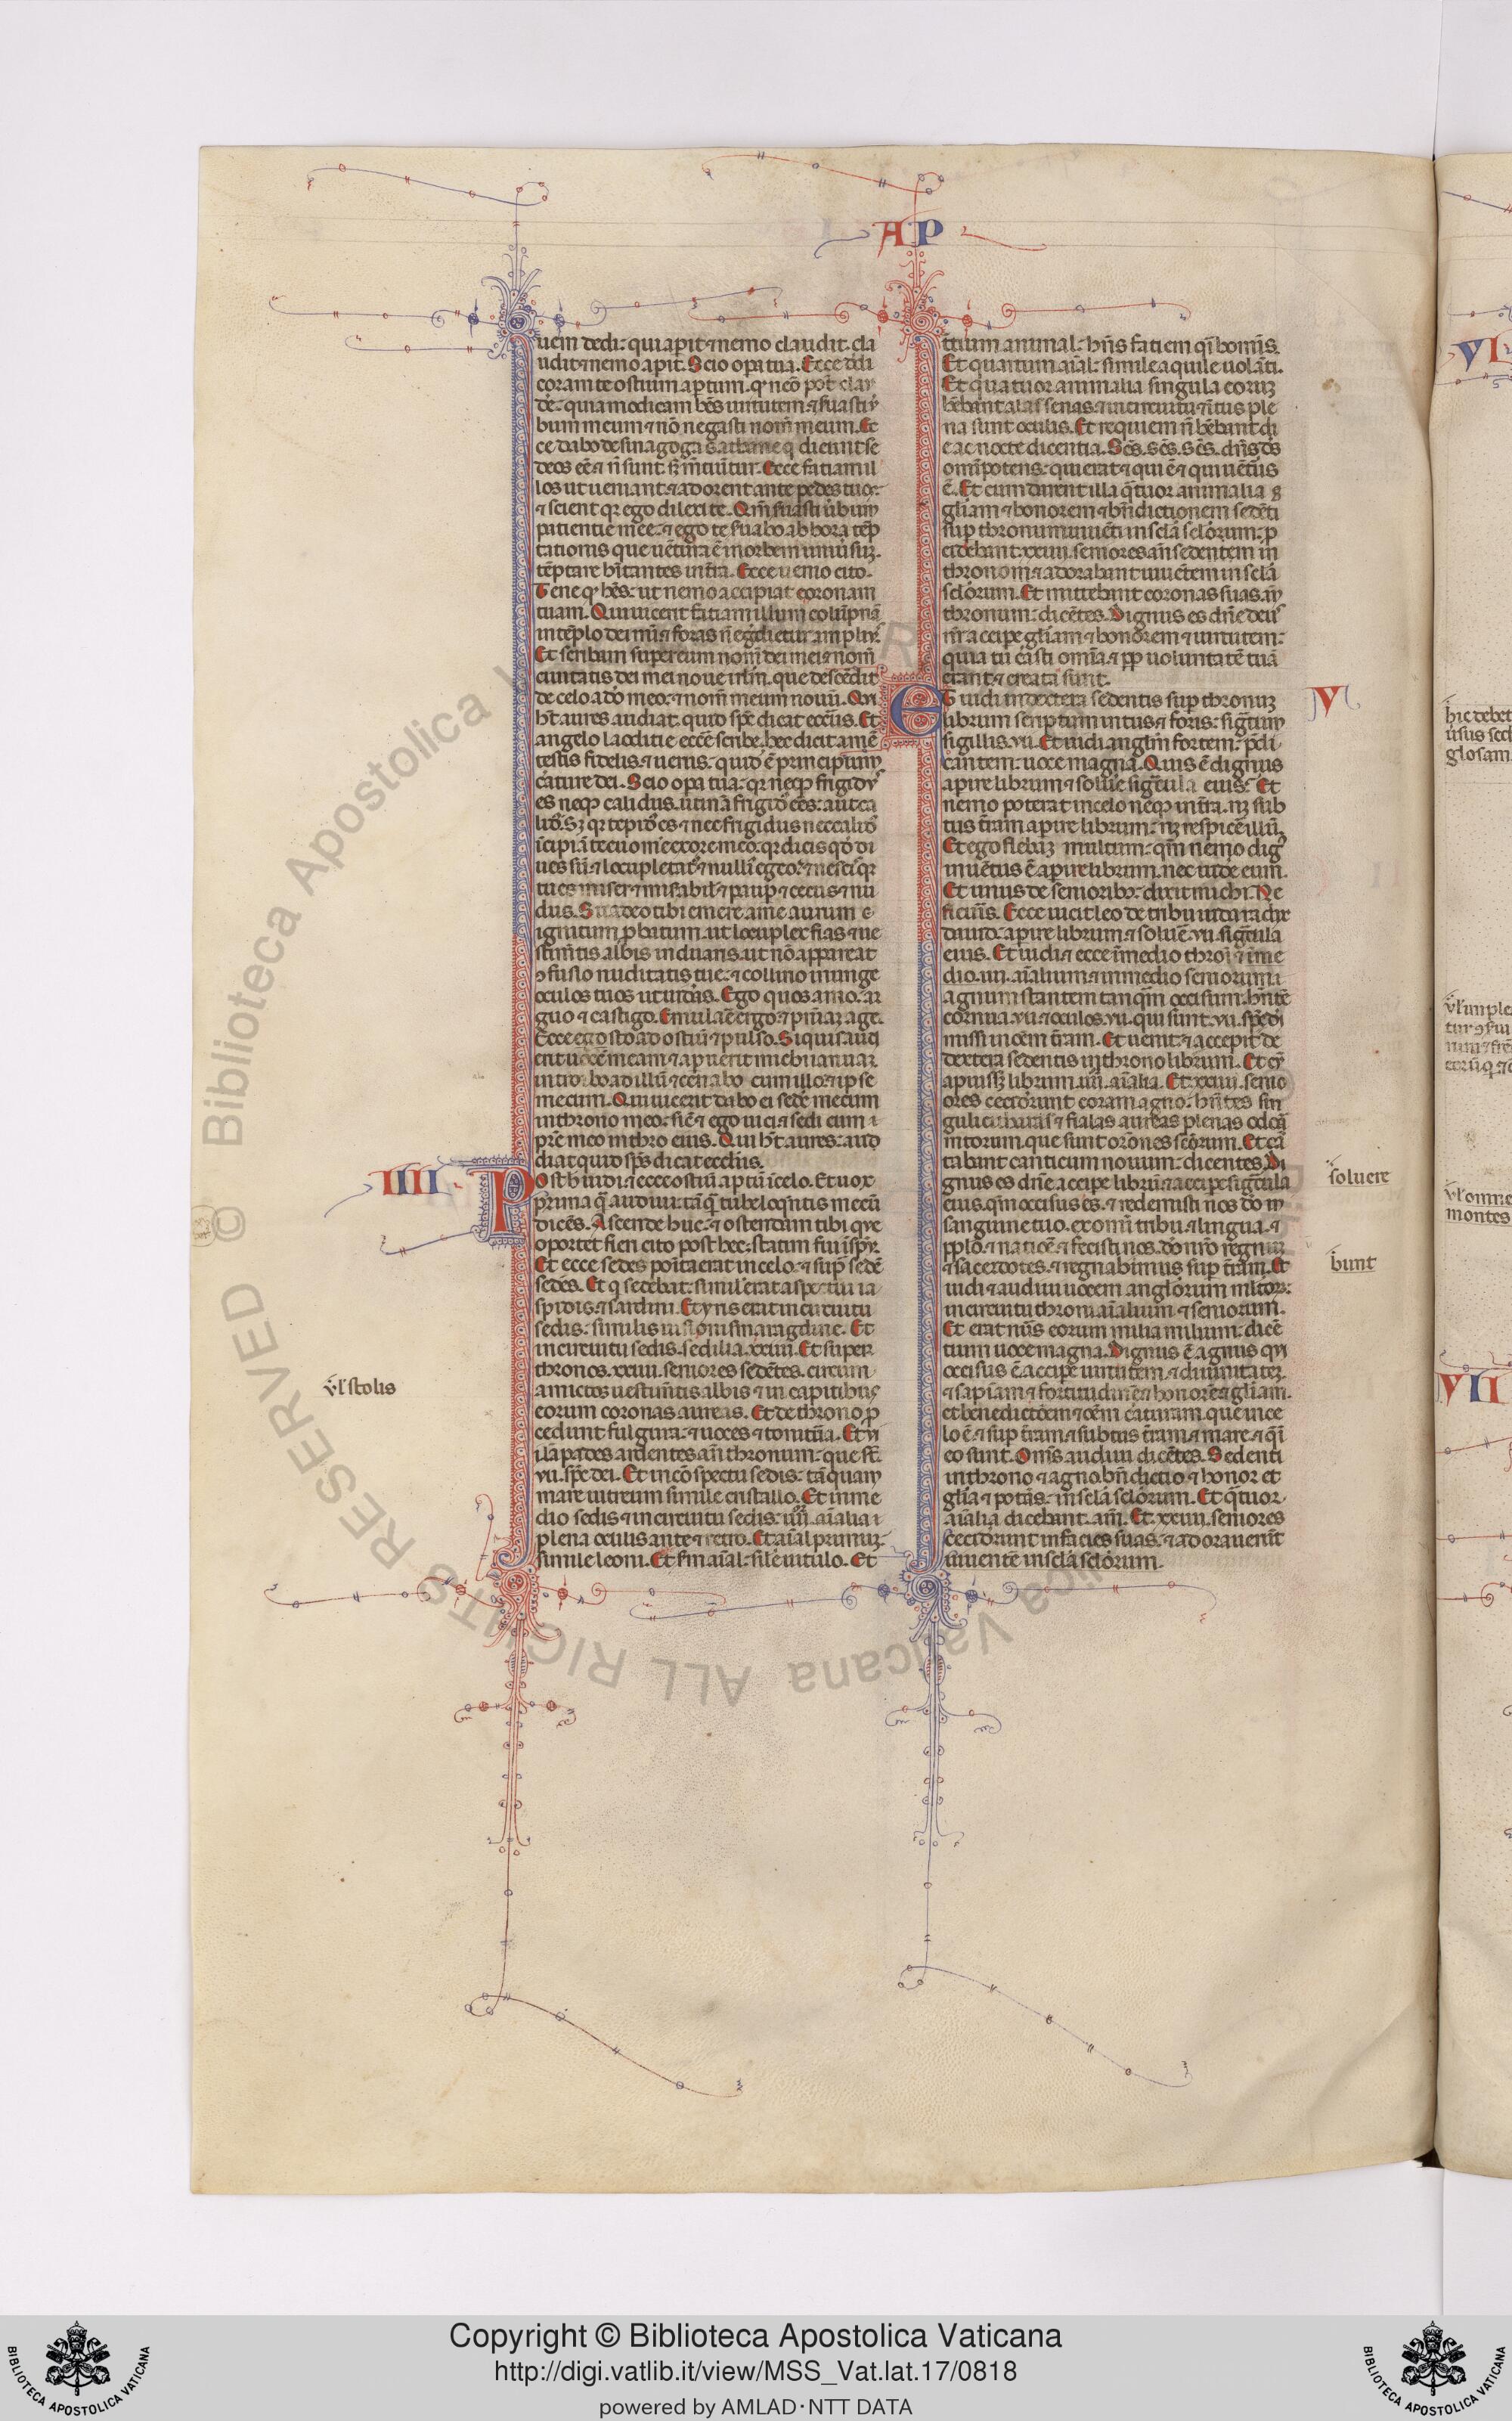 AP
uem dedi: qui aperit ⁊ nemo claudit. cla
udit ⁊ nemo aperit. Scio opera tua. Ecce dedi
coram te ostium apertum. qd̛ neō pot̄ clau
de: quia modicam hēs uirtutem ⁊ ẜuasti ū
bum meum ⁊ nō negasti nom̄ meum. Ec
ce dabo de sinagoga sathane q̄ dicunt se
deos eē ⁊ n̄ sunt. sꝫ m̄tiūtur. Ecce faciam il
los ut ueniant ⁊ adorent ante pedes tuos.
⁊ scient qꝛ ego dilexi te. Qm̄ ẜuasti ūbum
patientie mee: ⁊ ego te ẜuabo ab hora tēp
tationis que uētura ē in orbem uniūsuꝫ.
tēptare hītantes in tr̄a. Ecce uenio cito.
Tene qd̛ hēs: ut nemo accipiat coronam
tuam. Qui uicerit faciam illum colūpnā
in tēplo dei mei ⁊ foras n̄ egdietur amplius.
Et scribam super eum nom̄ dei mei ⁊ nom̄
ciuitatis dei mei noue ir̄lm. que descēdit
de celo a deo meo: ⁊ nom̄ meum nouū. Qui
h̄t aures audiat. quid sp̄c dicat ecciis. Et
angelo laoditie ecc̄e scribe. hec dicit amē
testis fidelis ⁊ uerus: quid ē principium
c̄ature dei. Scio opera tua: qꝛ neqꝫ frigidꝰ
es neqꝫ calidus. utinā frigidꝰ eēs: aut ca
lidꝰ. Sꝫ qꝛ tepidꝰ es ⁊ nec frigidus nec calidꝰ
īcipiā te euomere ex ore meo. qꝛ dicis qd̛ di
ues sū ⁊ locupletatꝰ ⁊ nullꝰ egeo: ⁊ nescis qꝛ
tu es miser ⁊ misabil̛ ⁊ paup ⁊ cecus ⁊ nu
dus. Suadeo tibi emere a me aurum
ignitum ꝓbatum. ut locuplex fias ⁊ ue
stimētis albis induaris. ut nō appareat
ꝯfusio nuditatis tue: ⁊ collirio inunge
oculos tuos ut uideas. Ego quos amo. ar
guo ⁊ castigo. Emulare ergo ⁊ pn̄iaꝫ age.
Ecce ego sto ad ostiū ⁊ pulso. Si quis audi
erit uocem meam ⁊ apuerit michi ianuaꝫ
introibo ad illū ⁊ cenabo cum illo: ⁊ ipse
mecum. Qui uicerit dabo ei sedē mecum
in throno meo: sic̄ ⁊ ego uici ⁊ sedi cum
pr̄e meo in thro eius. Qui h̄t aures: aud
diat quid sp̄s dicat ecclīis.
IIII
Post h̄ uidi ⁊ ecce ostiū aptū ī celo. Et uox
prima q̄ audiui: tāq̄ tube loqn̄tis mecū
dicēs. Ascende huc: ⁊ ostendam tibi que
oportet fieri cito post hec: statim fui ī spū.
Et ecce sedes poita erat in celo: ⁊ sup sedē
sedēs. Et q̄ sedebat: simil̛ erat aspectui ia
spidis ⁊ sardini. Et yris erat in circuitu
sedis: similis uisioni smaragdine. Et
in circuitu sedis. sedilia. xxiiii. Et super
thronos. xxiiii. seniores sedētes. circum
amictos uestimētis albis ⁊ in capitibus
ul̛ stolis
eorum coronas aureas. Et de throno ꝓ
cedunt fulgura: ⁊ uoces ⁊ tonitrua. Et vii
lāpades ardentes an̄ thronum: que st̄
vii. sp̄c dei. Et in cōspectu sedis: tāquam
mare uitreum simile cristallo. Et in me
dio sedis ⁊ in circuitu sedis: iiiior aīalia
plena oculis ante ⁊ retro. Et aīal primuꝫ
simile leoni. Et sc̄m aīal: sīle uitulo. Et
tertium animal: hn̄s faciem qi̇ hominis.
Et quartum aīal: simile aquile uolāti.
Et quatuor animalia singula eorum
hēbant alas senas: ⁊ in circuitu ⁊ ītus ple
na sunt oculis. Et requiem n̄ hēbant di
e ac nocte dicentia. Sc̄s. sc̄s. sc̄s. dn̄s ds̄
omīpotens: qui erat ⁊ qui ē ⁊ qui uēturus
ē. Et cum darent illa q̄tuor animalia
gl̄iam ⁊ honorem ⁊ bn̄dictionem sedēti
sup thronum uiuēti in scl̄a scl̄orum: ꝓ
cidebant. xxiiii. seniores an̄ sedentem in
thronom ⁊ adorabant uiuētem in scl̄a
scl̄orum. Et mittebant coronas suas. an̄
thronum: dicētes. Dignus es dn̄e deus
nr̄ accipe gl̄iam ⁊ honorem ⁊ uirtutem:
quia tu c̄asti omīa ⁊ pp̄ uoluntatē tuā
erant ⁊ creata sunt.
V
Et uidi in dextera sedentis sup thronuꝫ
librum scriptum intus ⁊ foris: signatum
sigillis. vii. Et uidi angl̄m fortem: p̄di
cantem: uoce magna. Quis ē dignus
apire librum ⁊ soluere signacula eius: Et
nemo poterat in celo neqꝫ in tr̄a. nꝫ sub
tus tr̄am apire librum: nꝫ respicē illū.
Et ego flebaꝫ multum: qm̄ nemo dignꝰ
inuētus ē apire librum. nec uide eum.
Et unus de senioribꝫ: dixit michi. Ne
fleueris. Ecce uicit leo de tribu iuda radix
dauid: apire librum ⁊ soluē. vii. signacula
eius. Et uidi ⁊ ecce ī medio throi ⁊ ī me
dio. iiii. aīalium ⁊ in medio seniorum
agnum stantem tanq̄m occisum. hn̄tē
cornua. vii. ⁊ oculos. vii. qui sunt. vii. sp̄c dī
missi in oēm tr̄am. Et uenit ⁊ accepit de
dextera sedentis in throno librum. Et cū
apuissꝫ librum. iiii. aīalia. Et xxiiii. seni
ores ceciderunt coram agno: hn̄tes sin
guli citharas ⁊ fialas aureas plenas odoꝝ
mtorum. que sunt orōnes sc̄orum. Et cā
tabant canticum nouum: dicentes. Di
soluere
gnus es dn̄e accipe librū ⁊ accipe signacula
eius. qm̄ occisus es. ⁊ redemisti nos dō in
sanguine tuo. ex omī tribu ⁊ lingua. ⁊
pp̄lo ⁊ nationē ⁊ fecisti nos. dō nr̄o regnum
bunt
⁊ sacerdotes. ⁊ regnabimus sup tr̄am. Et
uidi ⁊ audiui uocem anglorum multorꝫ:
in circuitu throni aīalium ⁊ seniorum.
Et erat nūs eorum milia milium: dicē
tium uoce magna. Dignus ē agnus qui
occisus ē accipe uirtutem. ⁊ diuinitateꝫ.
⁊ sap̄iam ⁊ fortitudinē ⁊ honorē ⁊ gl̄iam.
et benedictōem ⁊ oēm c̄aturam. que in ce
lo ē ⁊ sup tr̄am ⁊ subtus tr̄am ⁊ mare ⁊ q̄ ī
eo sunt. Om̄s audiui dicētes. Sedenti
in throno ⁊ agno. bn̄dictio ⁊ honor et
gl̄ia ⁊ potās: in scl̄a scl̄orum. Et q̄tuor
aīalia dicebant. am̄. Et. xxiiii. seniores
ceciderunt in facies suas: ⁊ adorauerūt
uiuentē in scl̄a scl̄orum.
VI
VII
Copyright © Biblioteca Apostolica Vaticana
http://digi.vatlib.it/view/MSS_Vat.lat.17/0818
powered by AMLAD·NTT DATA
BIBLIOTECA APOSTOLICA VATICANA
BIBLIOTECA APOSTOLICA VATICANA
© Biblioteca Apostolica Vaticana ALL RIGHTS RESERVED